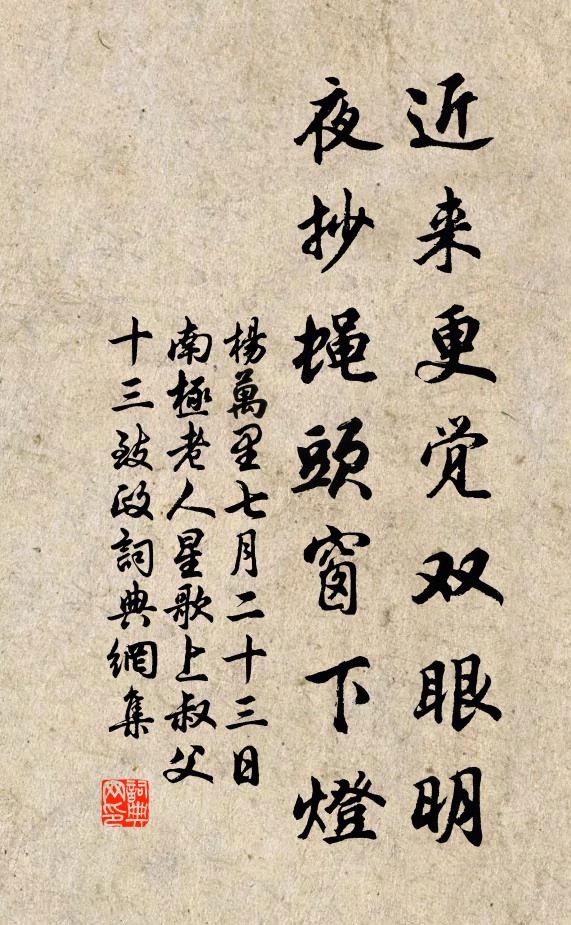 近来更觉双眼明
夜抄蝇頭窗下燈
楊萬里七月二十三日
南極老人星歌上叔父
十三致政詞典網集
詞典
网印